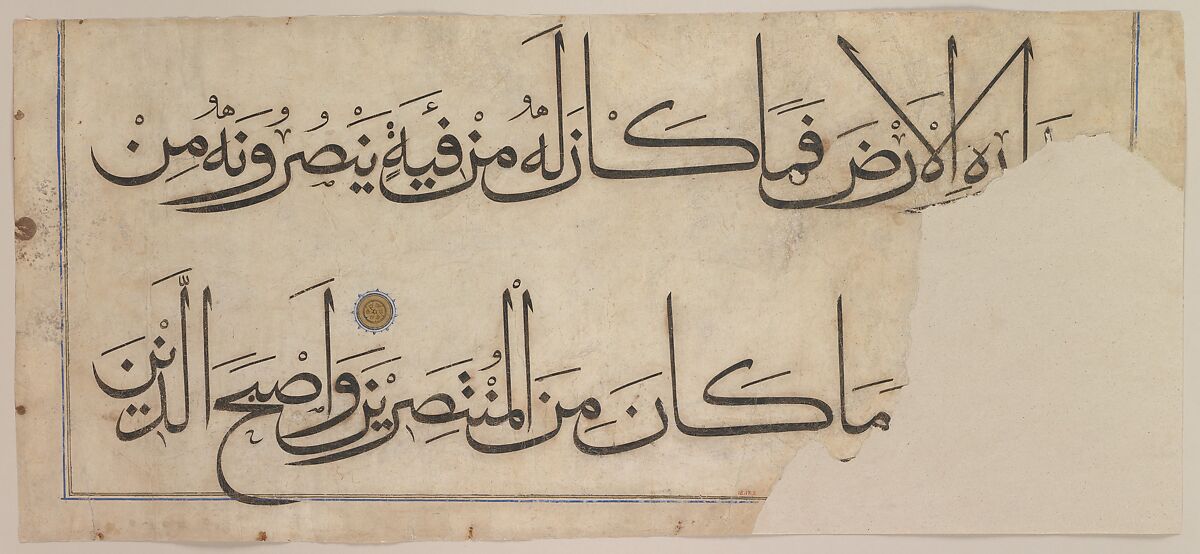 ارِهِ الْاَرْضَ فَمَا كَانَ لَهُ مِنْ فِئَةٍ يَنْصُرُونَهُ مِنْ
مَا كَانَ مِنَ الْمُنْتَصِرِينَ وَاَصْبَحَ الَّذِينَ